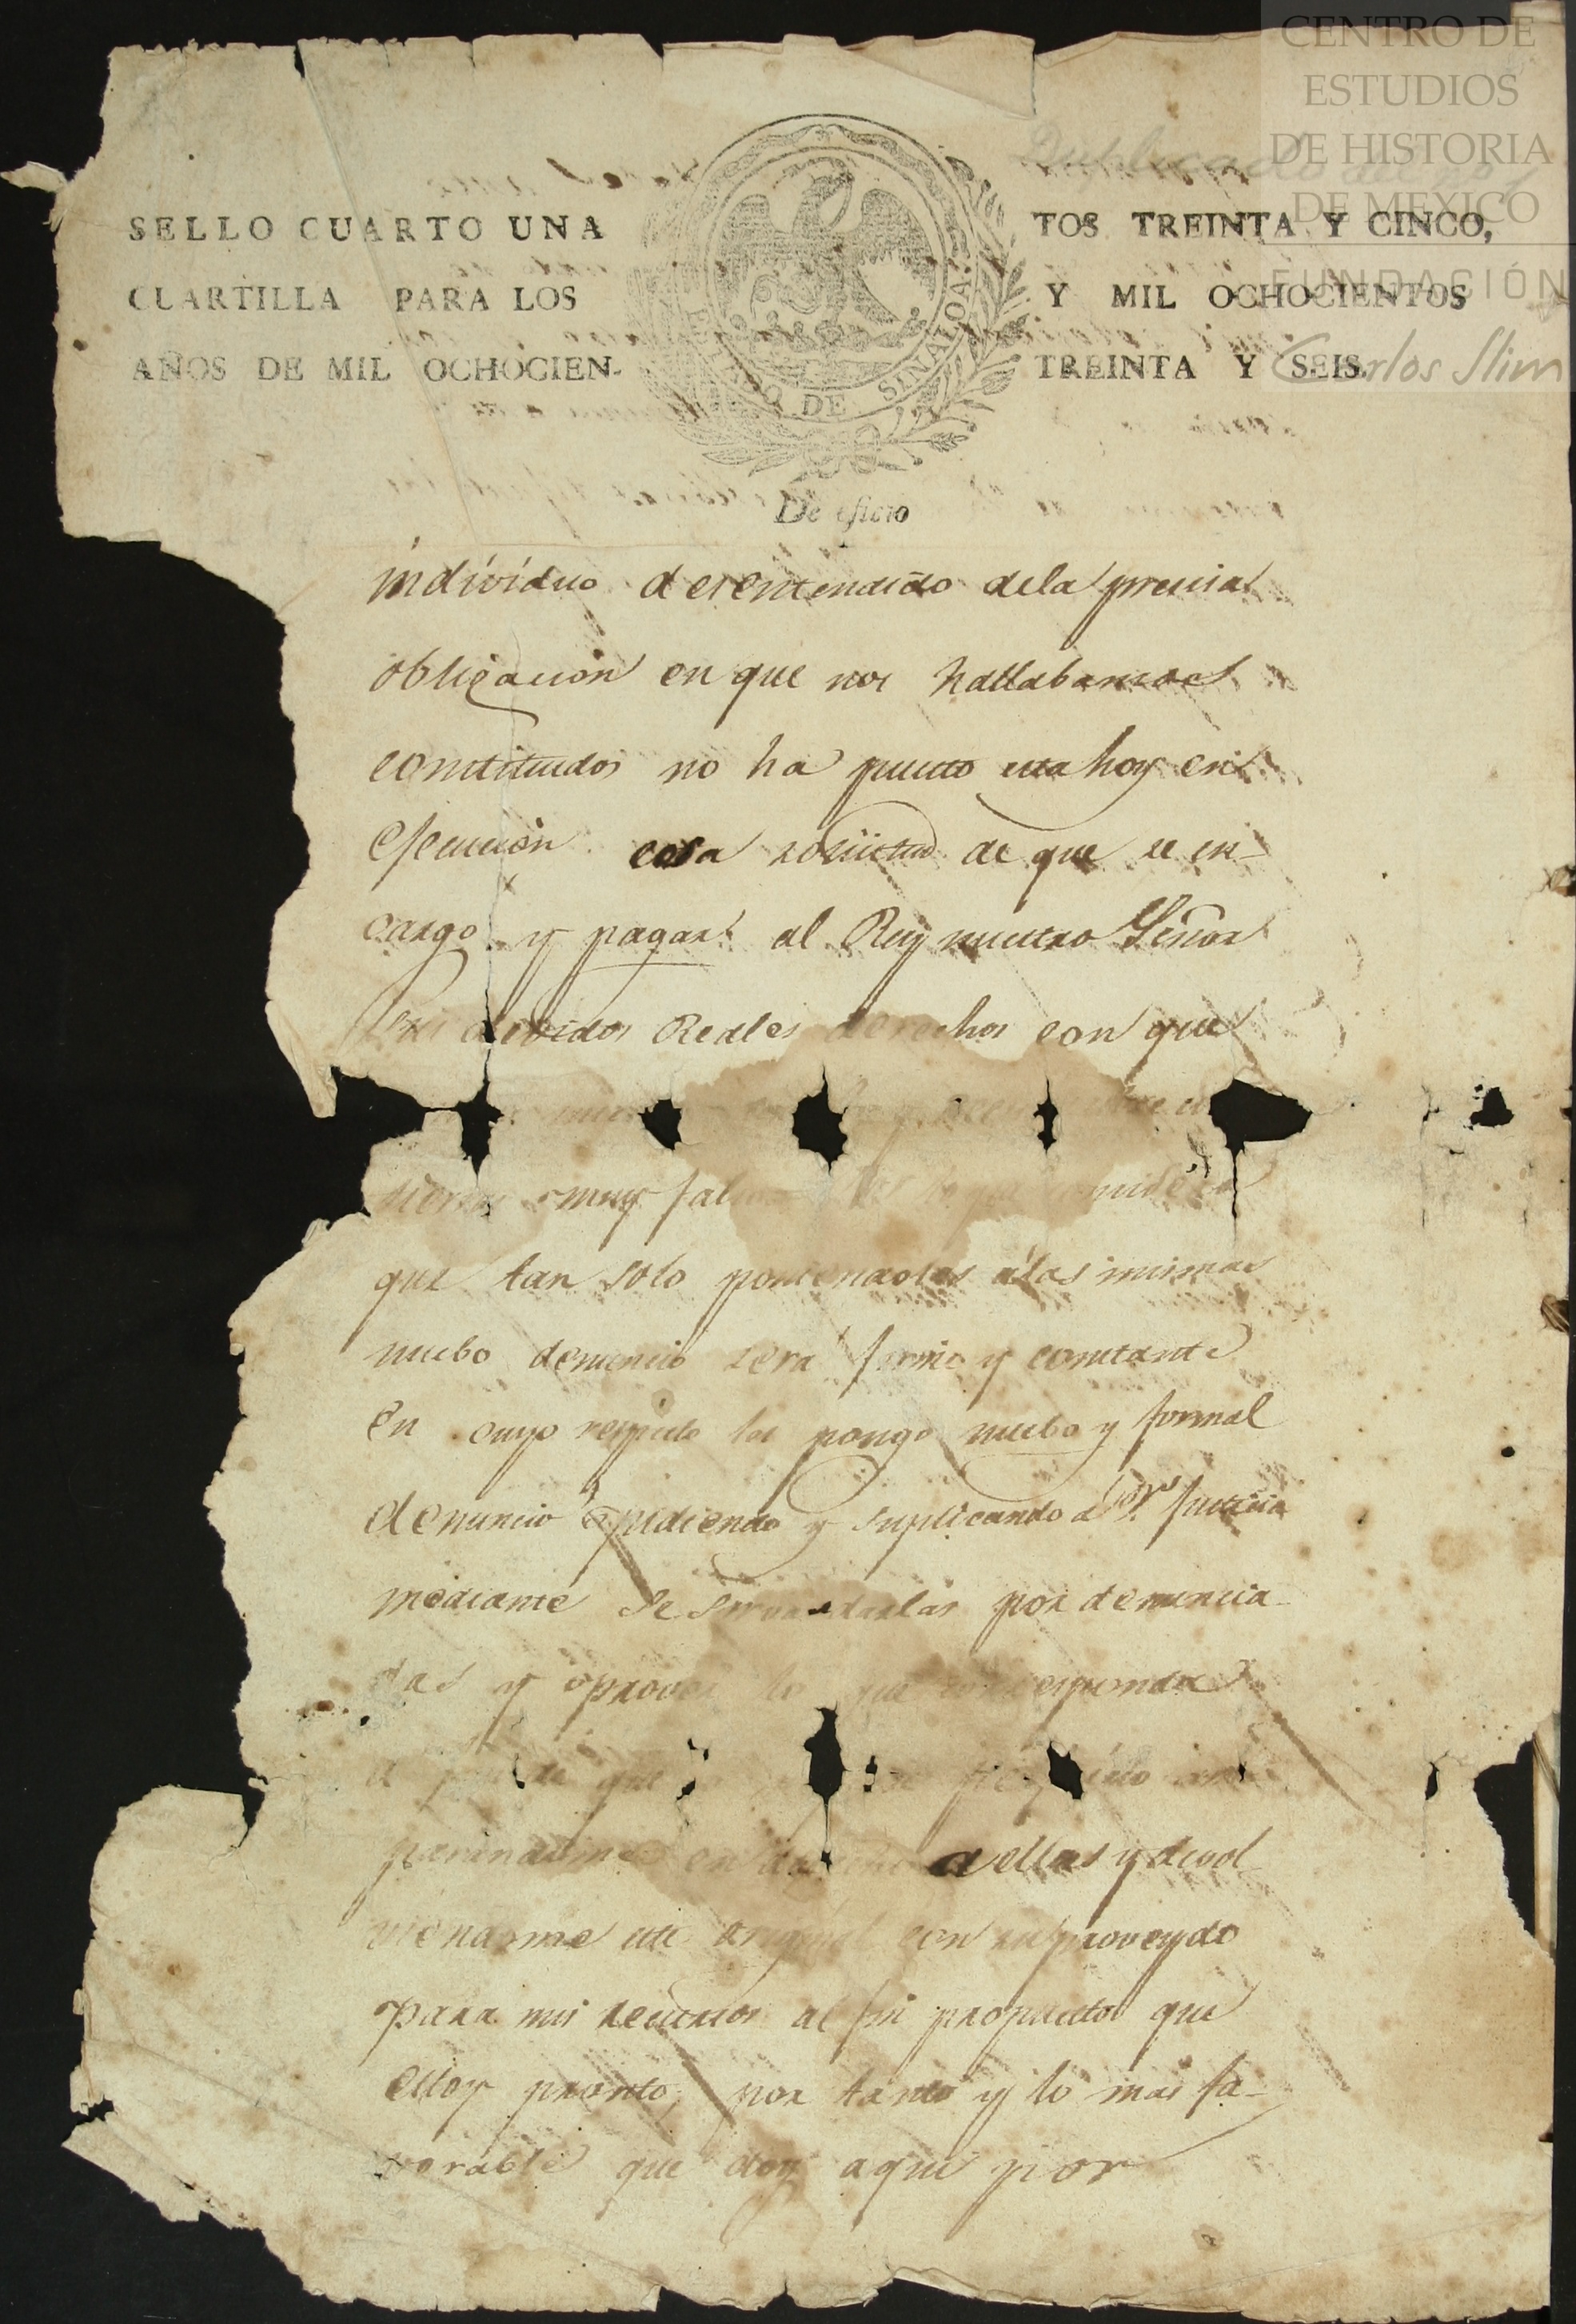 CENTRO DE
ESTUDIOS
DE HISTORIA
DE MEXICO
FUNDACIÓN
Carlos Slim
Duplicado
SELLO CUARTO UNA
CUARTILLA PARA LOS
AÑOS DE MIL OCHOCIEN-
TOS TREINTA Y CINCO,
Y MIL OCHOCIENTOS
TREINTA Y SEIS.
DE SINALOA.
De oficio
individuo desentendido dela precisa
obligacion en que nos hallabamos
constituidos no ha puesto esta hoy en
ejecucion esa solicitud de que se en-
cargo y pagar al Rey nuestro Señor
sus devidos Reales derechos con que
muy
que tan solo poniendolas álas mismas
nuebo denuncio sera firme y constante
en cuyo respecto los pongo nuebo y formal
denuncio pidiendo y suplicando a Justicia
mediante se sirva darlas por denuncia-
das y proveer lo que corresponda
que
en dellas y devol-
viendome este original con su proveydo
para mis recursos al fin propuesto que
estoy pronto, por tanto y lo mas fa-
vorable que doy aqui por